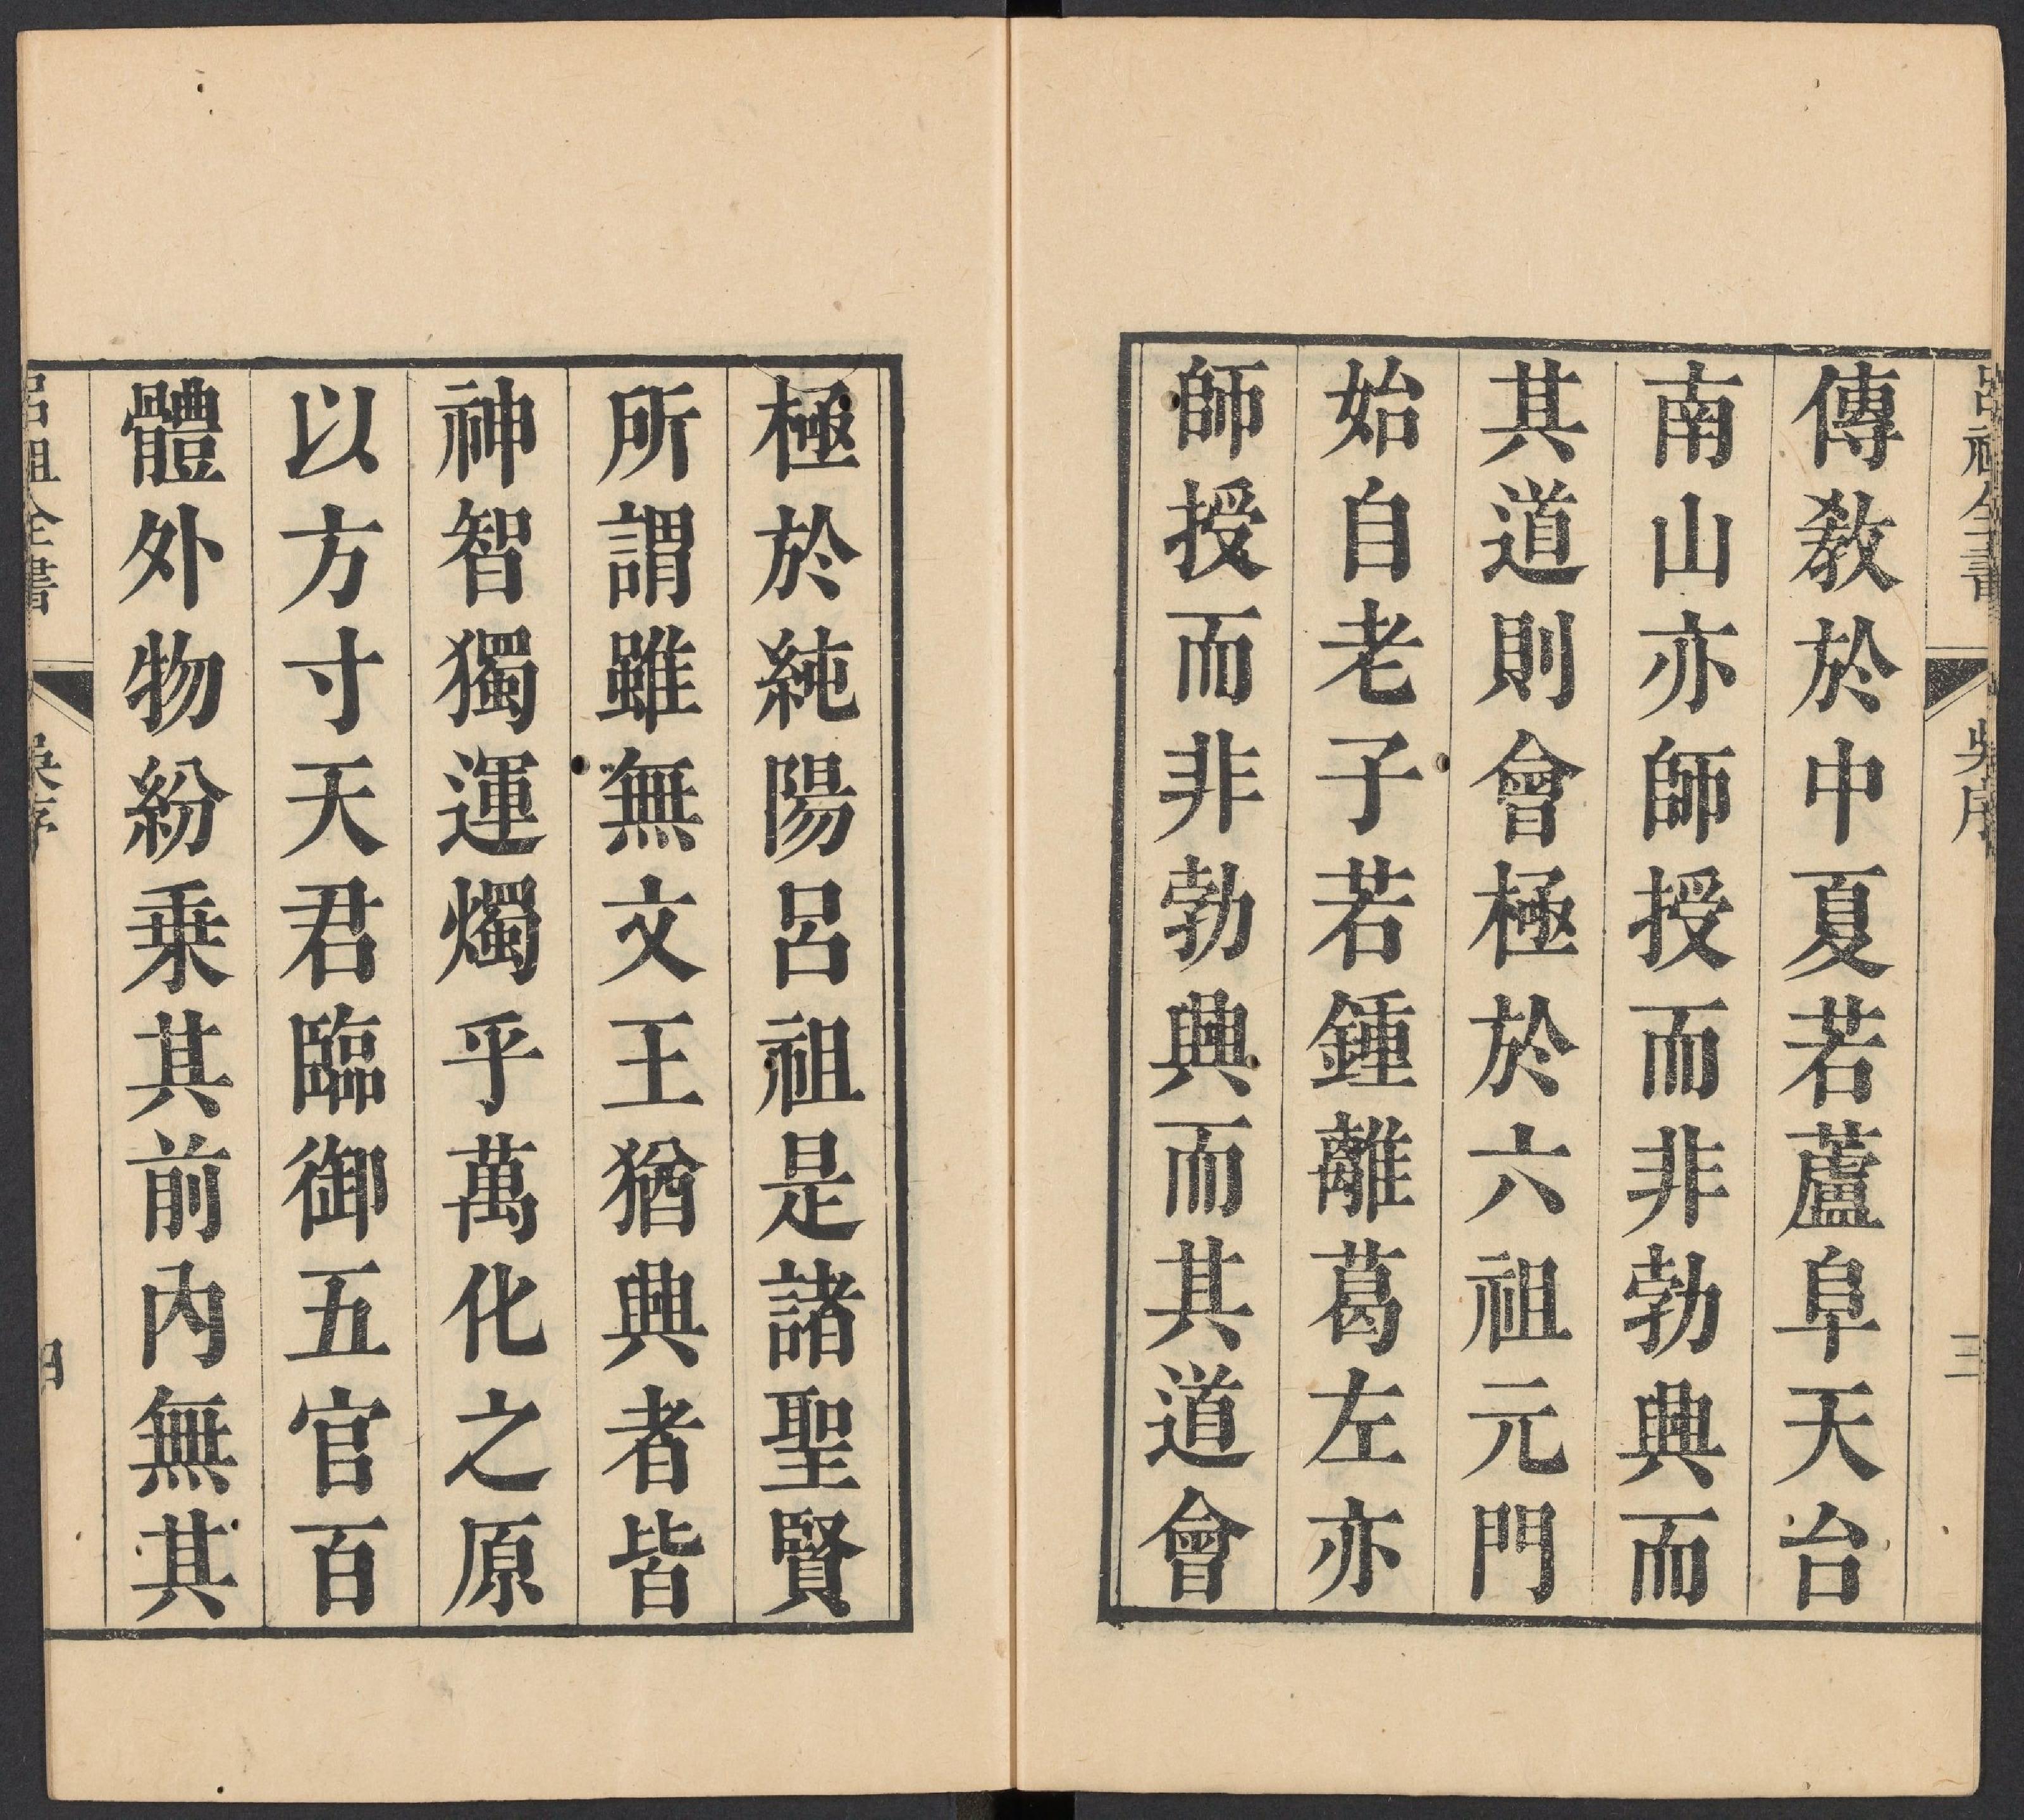 呂祖全書 吳序 三
傳教於中夏若蘆阜天台
南山亦師授而非勃興而
其道則會極於六祖元門
始自老子若鍾離葛左亦
師授而非勃興而其道會
極於純陽呂祖是諸聖賢
所謂雖無文王猶興者皆
神智獨運燭乎萬化之原
以方寸天君臨御五官百
體外物紛乗其前內無其
呂祖全書 吳序 四